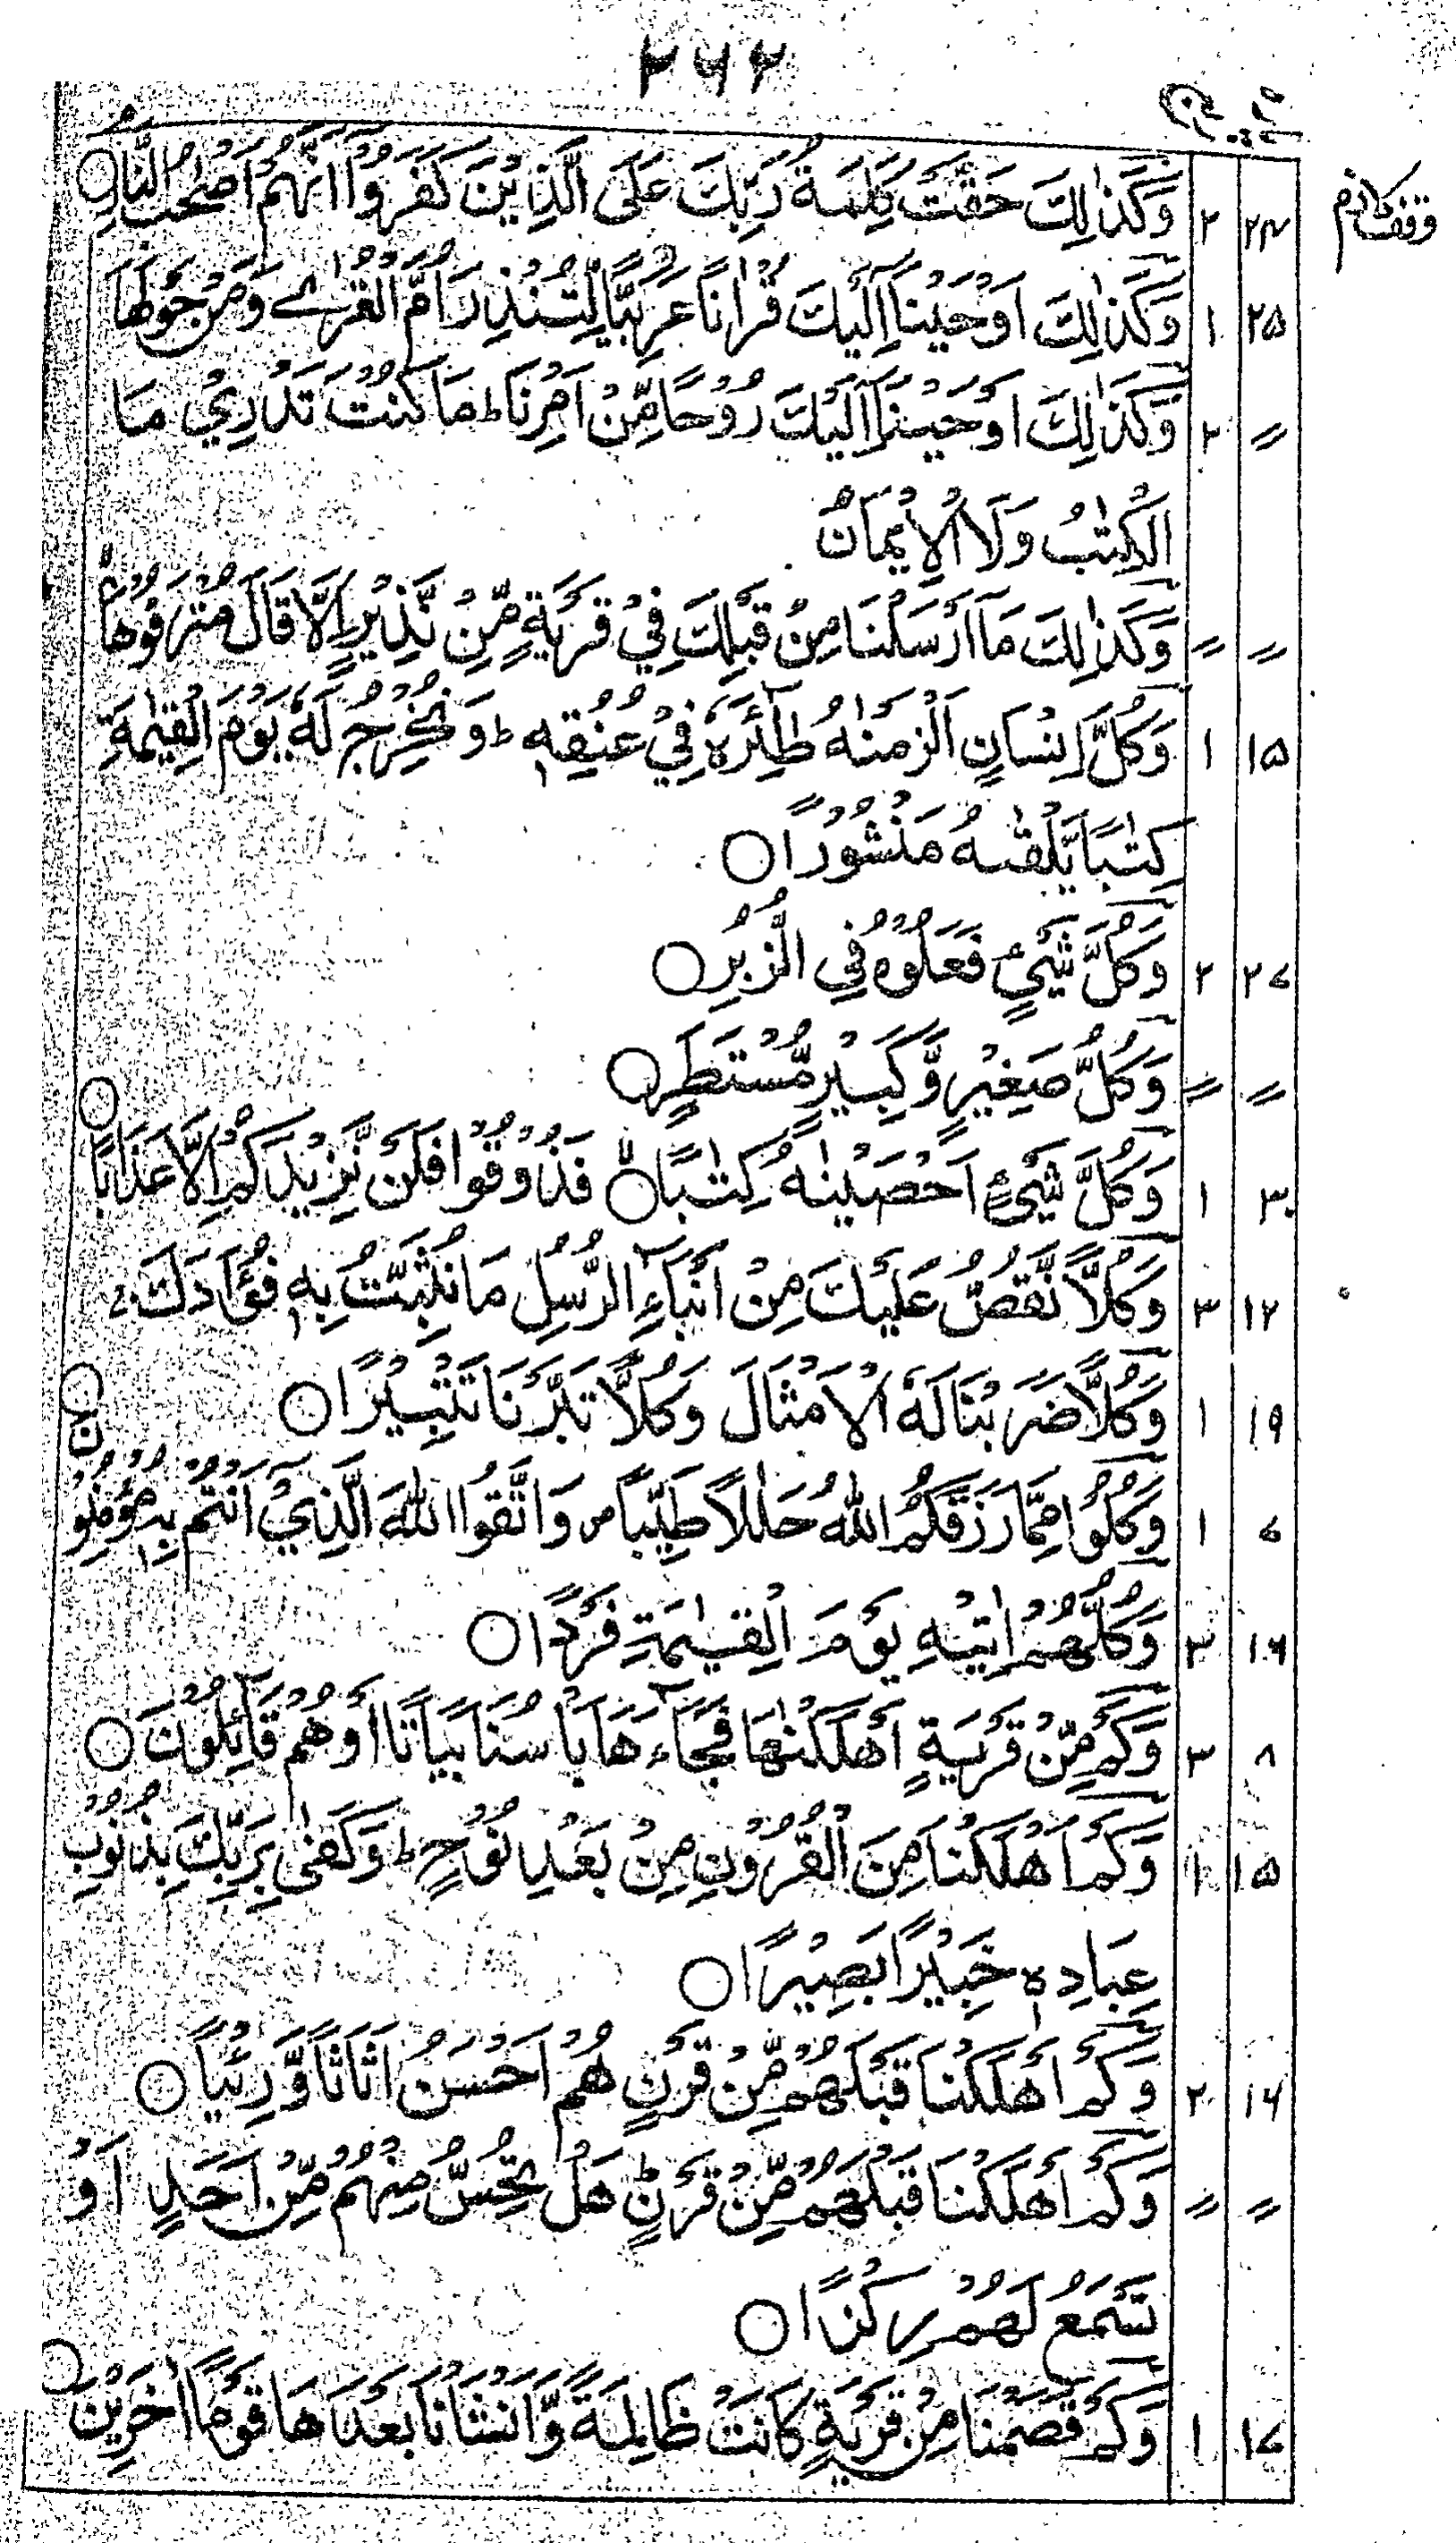 ۲۶۲
وقف لازم
۲۴ ۲ وَكَذٰلِكَ حَقَّتْ كَلِمَةُ رَبِّكَ عَلَى الَّذِيْنَ كَفَرُوْۤا اَنَّهُمْ اَصْحٰبُ النَّارِ ○
۲۵ ۱ وَكَذٰلِكَ اَوْحَيْنَاۤ اِلَيْكَ قُرْاٰنًا عَرَبِيًّا لِّتُنْذِرَ اُمَّ الْقُرٰى وَمَنْ حَوْلَهَا
〃 ۲ وَكَذٰلِكَ اَوْحَيْنَاۤ اِلَيْكَ رُوْحًا مِّنْ اَمْرِنَا ؕ مَا كُنْتَ تَدْرِيْ مَا
الْكِتٰبُ وَلَا الْاِيْمَانُ
〃 〃 وَكَذٰلِكَ مَاۤ اَرْسَلْنَا مِنْ قَبْلِكَ فِيْ قَرْيَةٍ مِّنْ نَّذِيْرٍ اِلَّا قَالَ مُتْرَفُوْهَاۤ
۱۵ ۱ وَكُلَّ اِنْسَانٍ اَلْزَمْنٰهُ طٰٓئِرَهٗ فِيْ عُنُقِهٖ ؕ وَنُخْرِجُ لَهٗ يَوْمَ الْقِيٰمَةِ
كِتٰبًا يَّلْقٰىهُ مَنْشُوْرًا ○
۲۷ ۲ وَكُلُّ شَيْءٍ فَعَلُوْهُ فِي الزُّبُرِ ○
〃 〃 وَكُلُّ صَغِيْرٍ وَّكَبِيْرٍ مُّسْتَطَرٌ ○
۳۰ ۱ وَكُلَّ شَيْءٍ اَحْصَيْنٰهُ كِتٰبًا ○ فَذُوْقُوْا فَلَنْ نَّزِيْدَكُمْ اِلَّا عَذَابًا ○
۱۲ ۳ وَكُلًّا نَّقُصُّ عَلَيْكَ مِنْ اَنْۢبَآءِ الرُّسُلِ مَا نُثَبِّتُ بِهٖ فُؤَادَكَ ۚ
۱۹ ۱ وَكُلًّا ضَرَبْنَا لَهُ الْاَمْثَالَ وَكُلًّا تَبَّرْنَا تَتْبِيْرًا ○
۷ ۱ وَكُلُوْا مِمَّا رَزَقَكُمُ اللّٰهُ حَلٰلًا طَيِّبًا ۪ وَاتَّقُوا اللّٰهَ الَّذِيْۤ اَنْتُمْ بِهٖ مُؤْمِنُوْنَ ○
۱۶ ۳ وَكُلُّهُمْ اٰتِيْهِ يَوْمَ الْقِيٰمَةِ فَرْدًا ○
۸ ۳ وَكَمْ مِّنْ قَرْيَةٍ اَهْلَكْنٰهَا فَجَآءَهَا بَاْسُنَا بَيَاتًا اَوْ هُمْ قَآئِلُوْنَ ○
۱۵ ۱ وَكَمْ اَهْلَكْنَا مِنَ الْقُرُوْنِ مِنْۢ بَعْدِ نُوْحٍ ؕ وَكَفٰى بِرَبِّكَ بِذُنُوْبِ
عِبَادِهٖ خَبِيْرًۢا بَصِيْرًا ○
۱۶ ۲ وَكَمْ اَهْلَكْنَا قَبْلَهُمْ مِّنْ قَرْنٍ هُمْ اَحْسَنُ اَثَاثًا وَّرِءْيًا ○
〃 〃 وَكَمْ اَهْلَكْنَا قَبْلَهُمْ مِّنْ قَرْنٍ ؕ هَلْ تُحِسُّ مِنْهُمْ مِّنْ اَحَدٍ اَوْ
تَسْمَعُ لَهُمْ رِكْزًا ○
۱۷ ۱ وَكَمْ قَصَمْنَا مِنْ قَرْيَةٍ كَانَتْ ظَالِمَةً وَّاَنْشَاْنَا بَعْدَهَا قَوْمًا اٰخَرِيْنَ ○